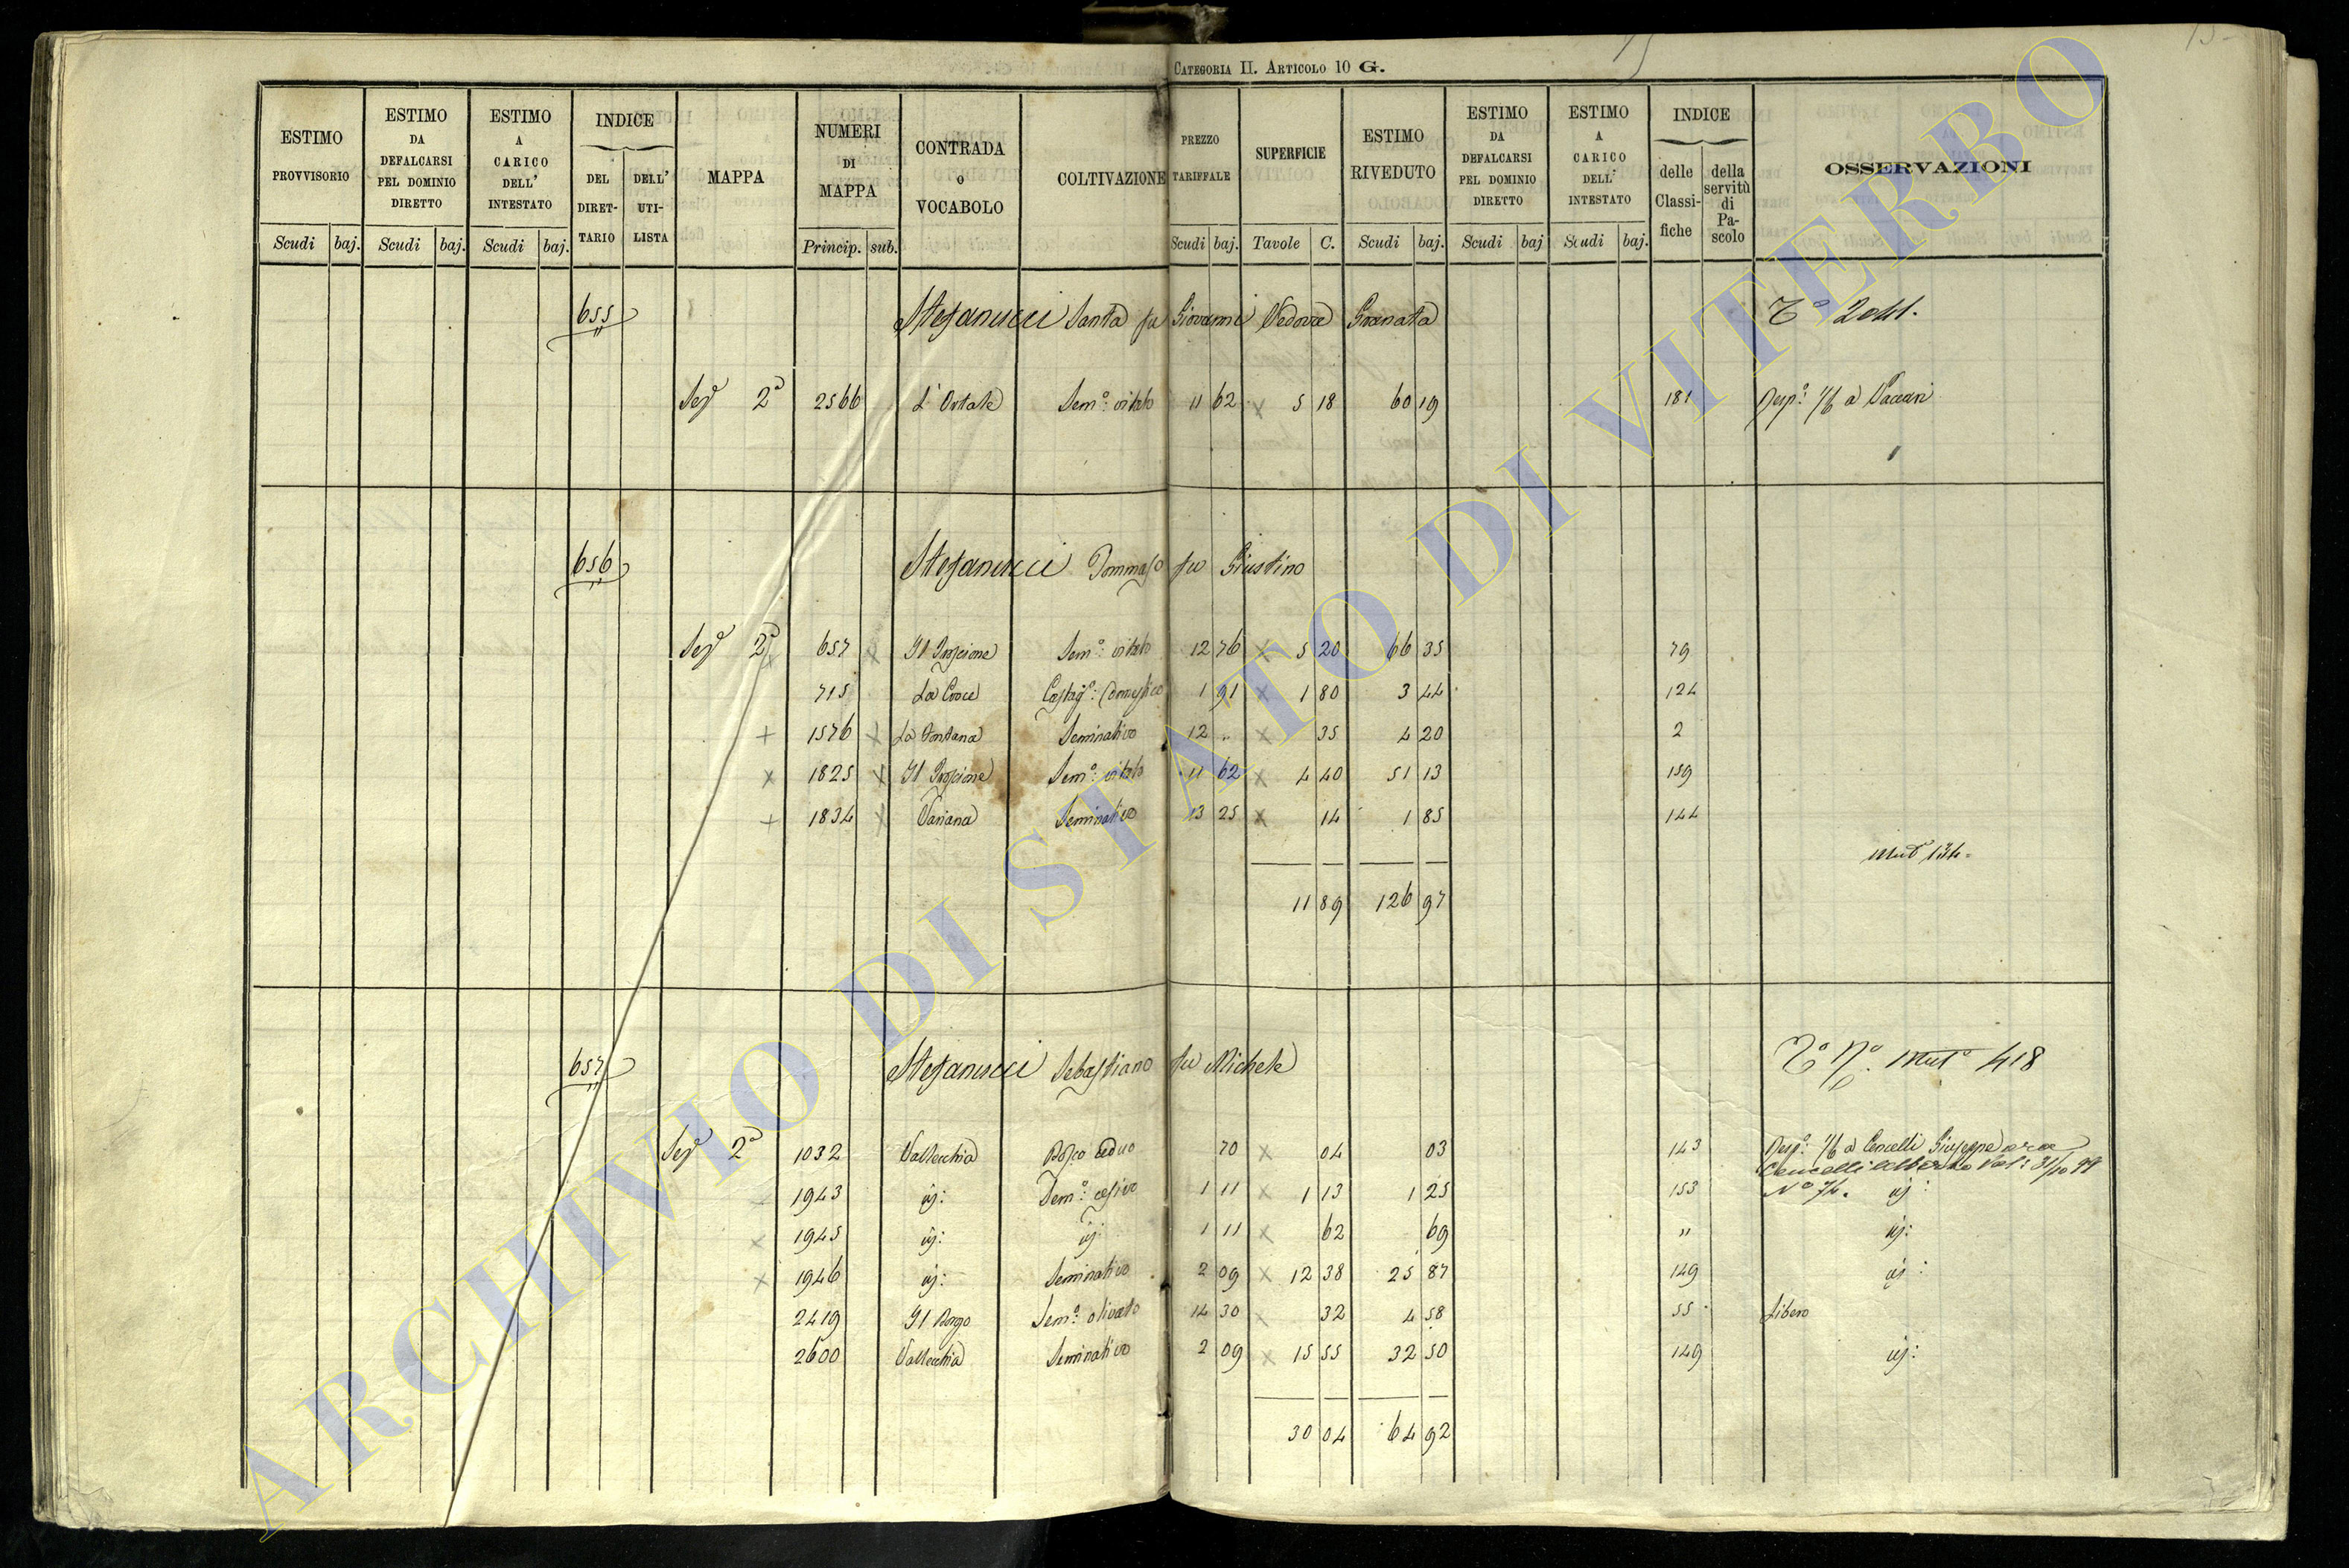 CATEGORIA II. ARTICOLO 10 G.
ESTIMO PROVVISORIO Scudi baj.
ESTIMO DA DEFALCARSI PEL DOMINIO DIRETTO Scudi baj.
ESTIMO A CARICO DELL' INTESTATO Scudi baj.
INDICE DEL DIRET-TARIO DELL' UTI-LISTA
MAPPA
NUMERI DI MAPPA Princip. sub.
CONTRADA o VOCABOLO
COLTIVAZIONE
PREZZO TARIFFALE Scudi baj.
SUPERFICIE Tavole C.
ESTIMO RIVEDUTO Scudi baj.
ESTIMO DA DEFALCARSI PEL DOMINIO DIRETTO Scudi baj
ESTIMO A CARICO DELL' INTESTATO Scudi baj.
INDICE delle Classi-fiche della servitù di Pa-scolo
OSSERVAZIONI
655 Stefanucci Santa fu Giovanni Vedova Granata
2a 2566 L'Ortale Semo: vitato 11 62 x 5 18 60 19 181
656 Stefanucci Tommaso fu Giustino
2a 657 x Semo: vitato 12 76 x 5 20 66 35 79
715 La Croce Castago: domestico 1 91 x 1 80 3 44 124
+ 1576 x La Fontana Seminativo 12 .. x 35 4 20 2
x 1825 x Semo: vitato 11 62 x 4 40 51 13 159
+ 1834 x Seminativo 13 25 x 14 1 85 144
Mut 134=
11 89 126 97
657 Stefanucci Sebastiano fu Michele Mut 418
2a 1032 Vallecchia Bosco ceduo 70 x 04 03 143 a Cencelli Giuseppe ora
Cencelli
1943 ij: Semo: 1 11 x 1 13 1 25 153 No 74. ij:
x 1945 ij: ij 1 11 x 62 69 " ij:
x 1946 ij: Seminativo 2 09 x 12 38 25 87 149 ij:
2419 Il Borgo Semo: olivato 14 30 x 32 4 58 55 Libero
2600 Vallecchia Seminativo 2 09 x 15 55 32 50 149 ij:
30 04 64 92
ARCHIVIO DI STATO DI VITERBO